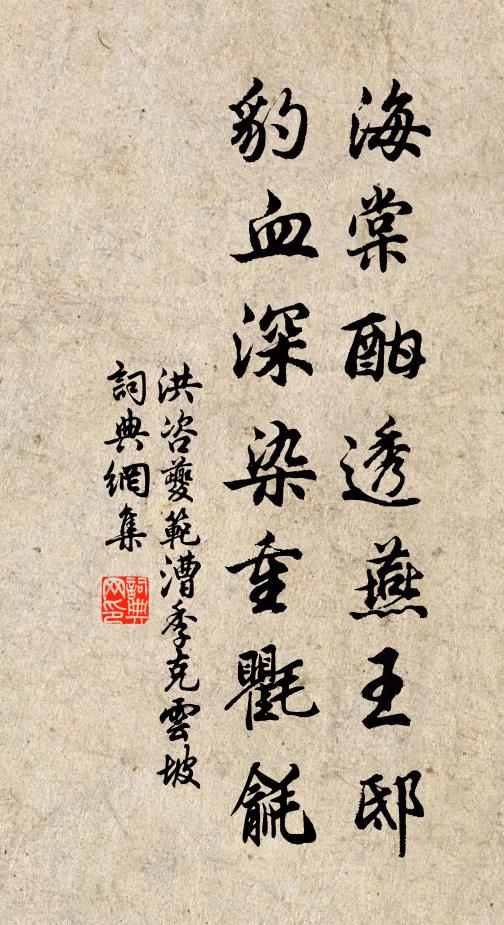 海棠酣透燕王邸
豹血深染重氍毹
洪咨夔範漕季克雲坡
詞典網集
詞典